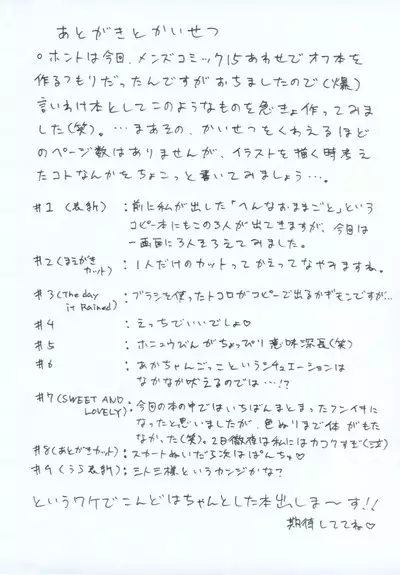 あとがきとかいせつ
○ホントは今回、メンズコミック15あわせでオフ本を
作るつもりだったんですがおちましたので(爆)
言いわけ本としてこのようなものを急きょ作ってみま
した(笑)。…まあその、かいせつをくわえるほど
のページ数はありませんが、イラストを描く時考え
たコトなんかをちょこっと書いてみましょう…。
#1 (表紙) :前に私が出した「へんなおままごと」という
コピー本にもこの3人が出てきますが、今回は
一画面に3人そろえてみました。
#2(まえがきカット) :1人だけのカットってかえってなやみますね。
#3(The day it Rained) :ブラシを使ったトコロがコピーで出るかギモンですが…
#4 :えっちでいいでしょ♡
#5 :ホニュウびんがちょっぴり意味深長(笑)
#6 :あかちゃんごっこというシチュエーションは
なかなか吠えるのでは…!?
#7(SWEET AND LOVELY) :今回の本の中ではいちばんまとまったフンイキに
なったと思いましたが、色ぬりまで体がもた
なかった(笑)。2日徹夜は私にはカコクすぎ(
#8(あとがきカット) :スカートぬいだら次はぱんちゅ♡
#9(うら表紙) :三人三様というカンジかな?
というワケでこんどはちゃんとした本出しま〜す!!
期待しててね♡